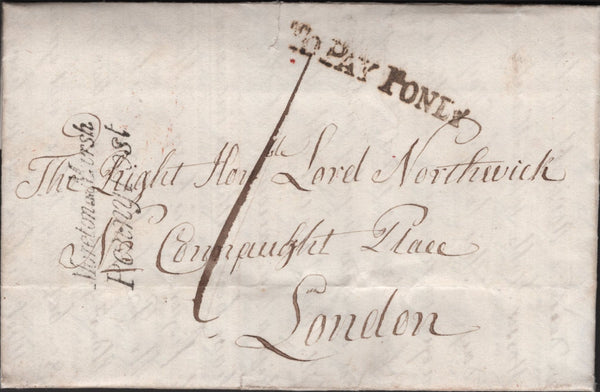 To PAY ONLY
Moreton in Marsh
Penny Post
1
The Right Honble Lord Northwick
Connaught Place
London